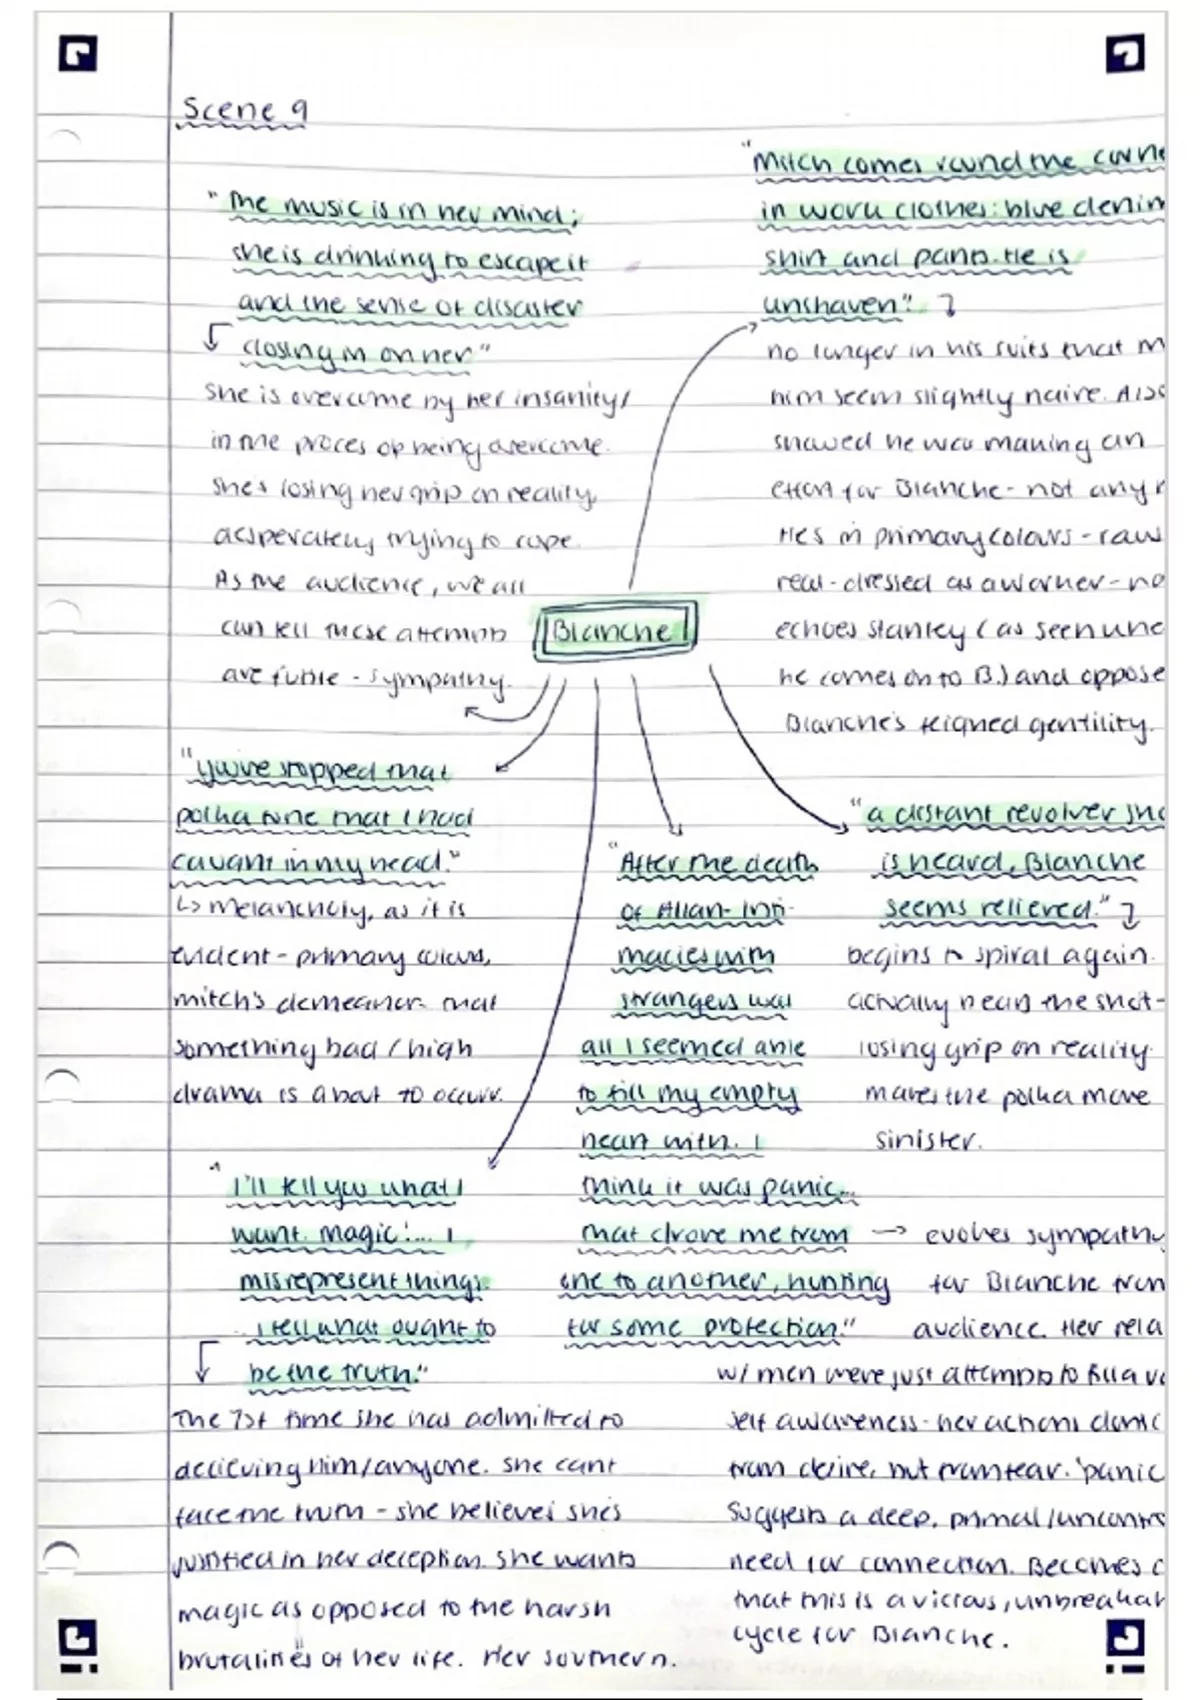 Scene 9
"The music is in her mind;
she is drinking to escape it
and the sense of disaster
closing in on her"
She is overcome by her insanity/
in the proces of being overcome.
She's losing her grip on reality,
desperately trying to cope.
As the audience, we all
can tell these attempts
are futile - sympathy.
"Mitch comes round the corne
in work clothes: blue denim
shirt and pants. He is
unshaven".
no longer in his suits that m
him seem slightly naive. Also
showed he was making an
effort for Blanche - not any
He's in primary colours - raw
real - dressed as a worker - no
echoes Stanley (as seen
he comes on to B.) and oppose
Blanche's feigned gentility.
Blanche
"you've stopped that
polka tune that I had
caught in my head."
↳ melancholy, as it is
evident - primary colours,
mitch's demeanor that
something bad / high
drama is about to occur.
"After the death
of Allan - inti-
macies with
strangers was
all I seemed able
to fill my empty
heart with. I
think it was panic...
that drove me from
one to another, hunting
for some protection."
→ evokes sympathy
for Blanche from
audience. Her rela
w/ men were just attempts to fill a vo
self awareness - her actions
from desire, but from fear. 'panic
suggests a deep, primal/uncontro
need for connection. Becomes c
that this is a vicious, unbreakab
cycle for Blanche.
"a distant revolver sho
is heard, Blanche
seems relieved."
begins to spiral again.
actually hears the shot -
losing grip on reality.
makes the polka more
sinister.
"I'll tell you what I
want. Magic!... I
misrepresent things.
I tell what ought to
be the truth."
The 1st time she has admitted to
decieving him/anyone. She cant
face the truth - she believes she's
justified in her deception. She wants
magic as opposed to the harsh
brutalities of her life. Her southern.